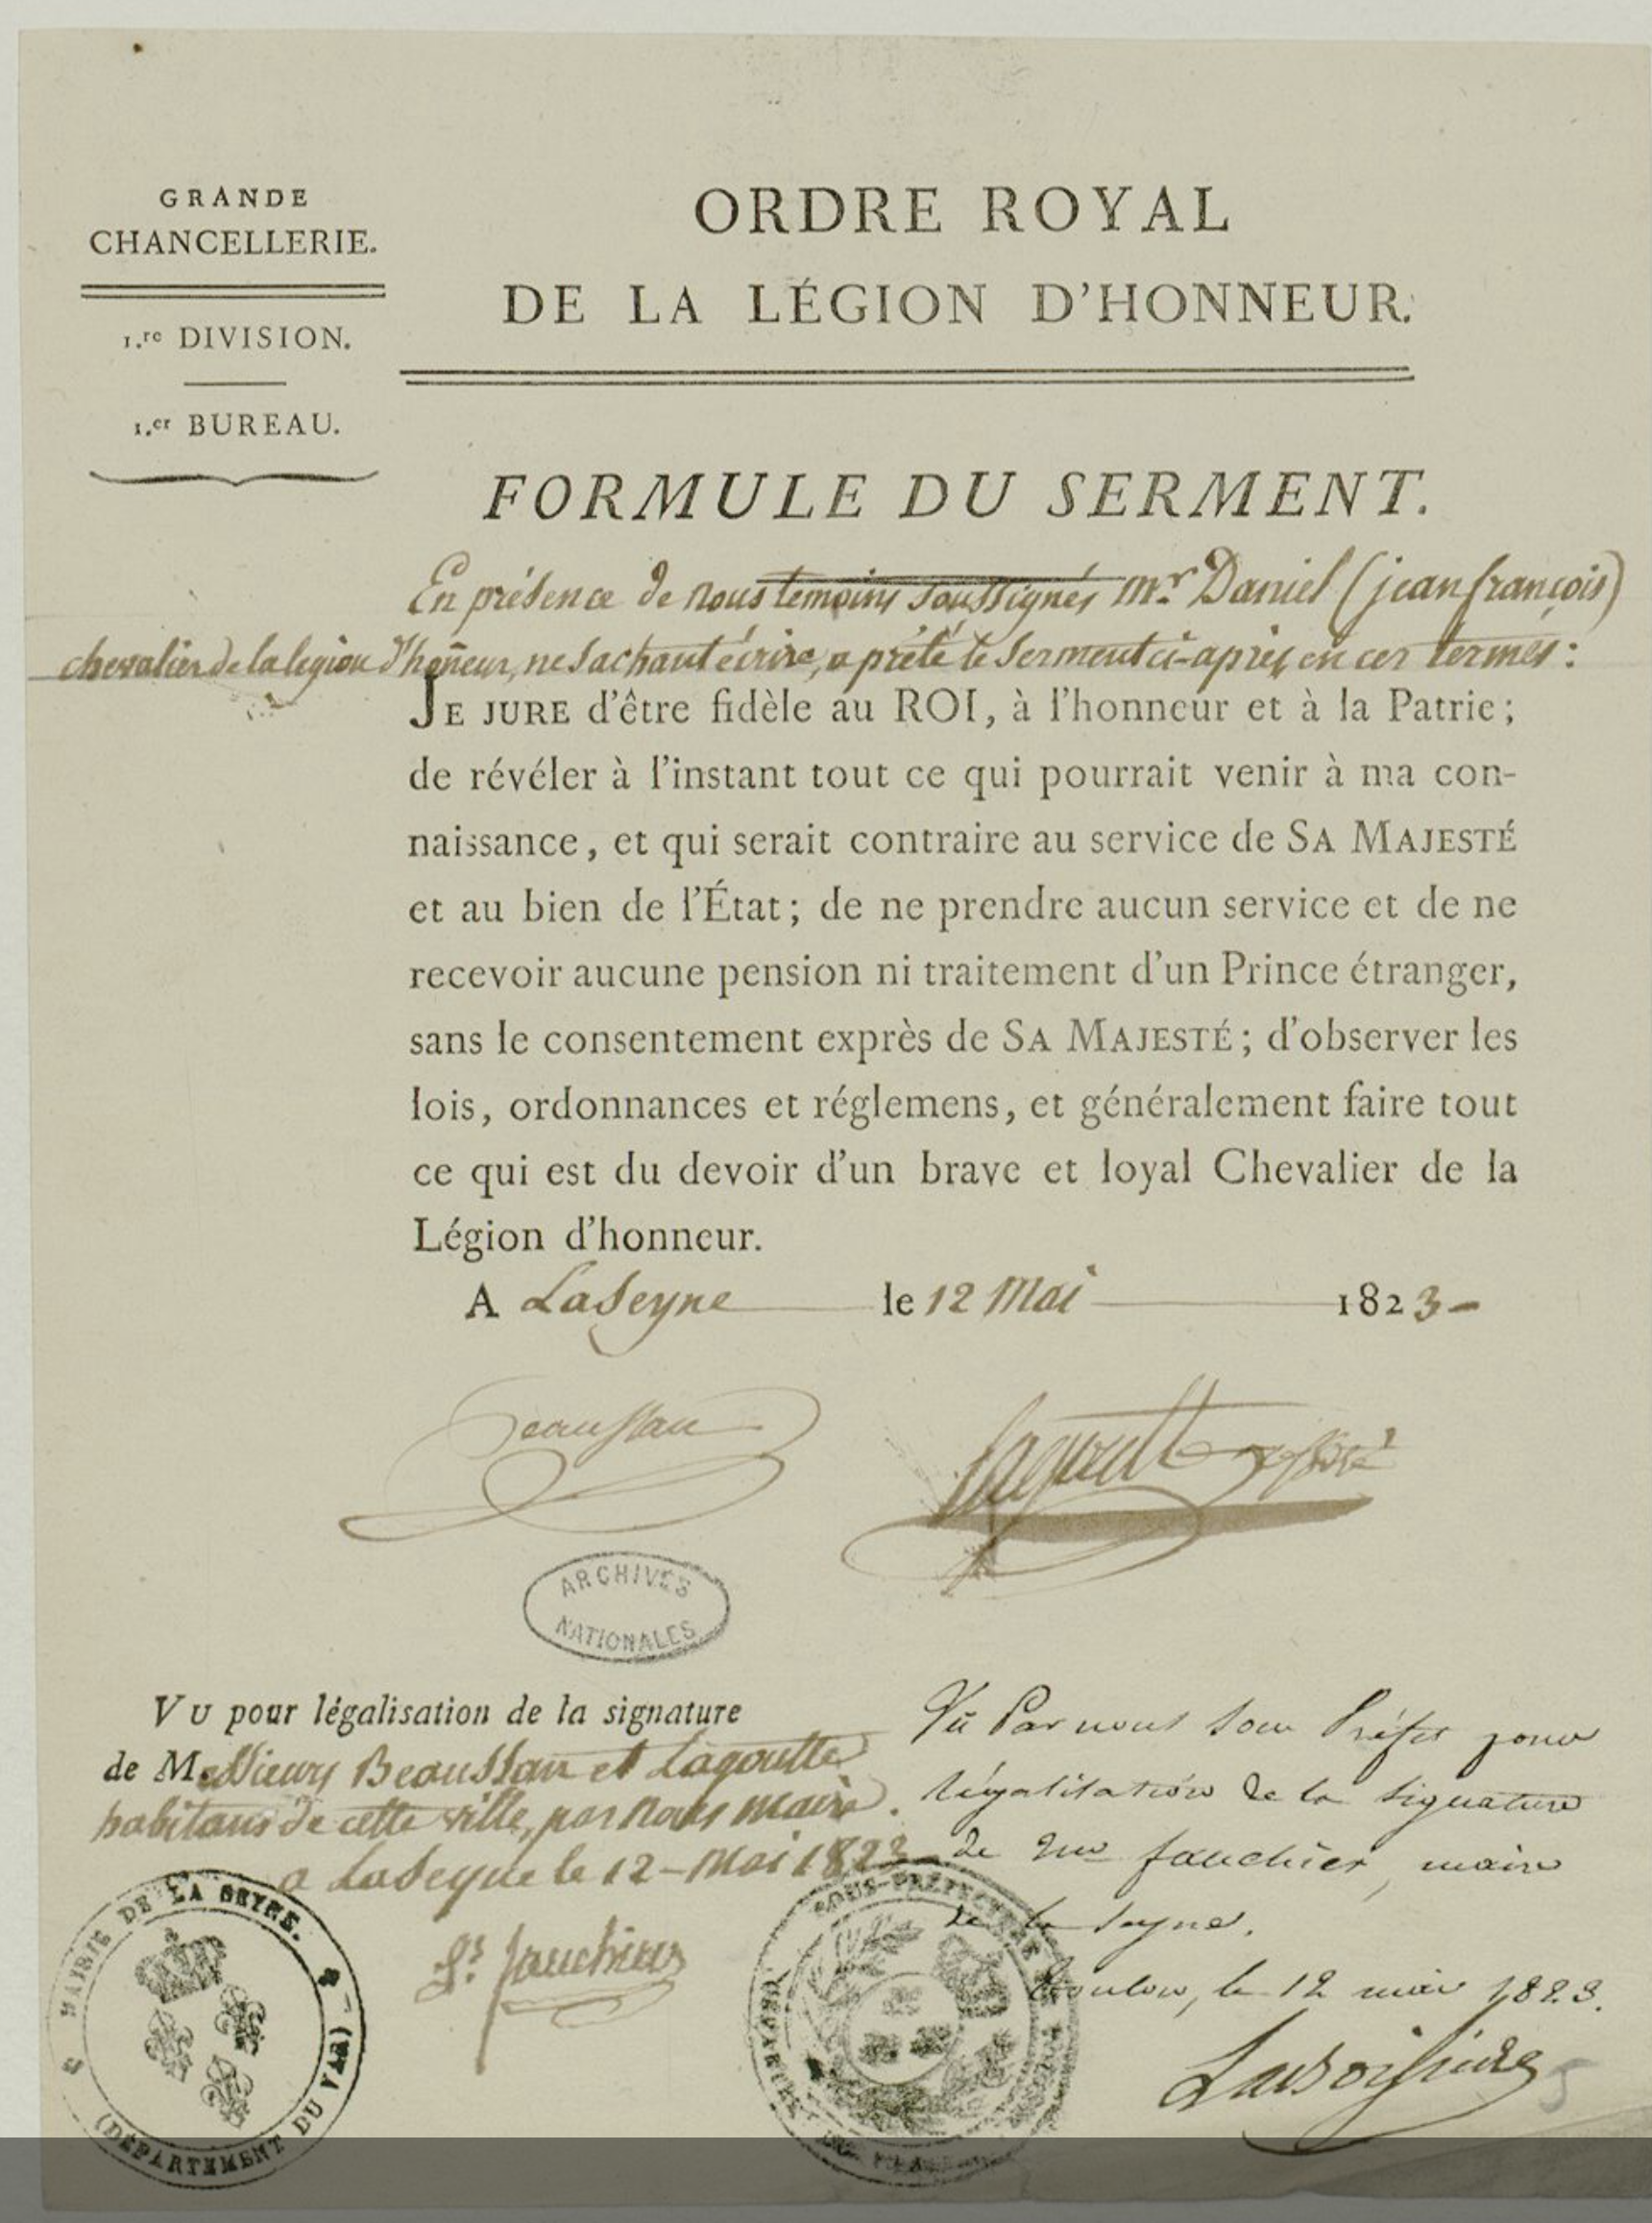 GRANDE
CHANCELLERIE.
1.re DIVISION.
1.er BUREAU.
ORDRE ROYAL
DE LA LÉGION D'HONNEUR.
FORMULE DU SERMENT.
En présence de nous temoins soussignés mr. Daniel (jean françois)
chevalier de la legion d'honeur, ne sachant écrire, a prêté le serment ci-après en ces termes :
JE JURE d'être fidèle au ROI, à l'honneur et à la Patrie;
de révéler à l'instant tout ce qui pourrait venir à ma con-
naissance, et qui serait contraire au service de SA MAJESTÉ
et au bien de l'État; de ne prendre aucun service et de ne
recevoir aucune pension ni traitement d'un Prince étranger,
sans le consentement exprès de SA MAJESTÉ; d'observer les
lois, ordonnances et réglemens, et généralement faire tout
ce qui est du devoir d'un brave et loyal Chevalier de la
Légion d'honneur.
A LaSeyne le 12 Mai 1823-
Beaussan
Lagoutte
ARCHIVES
NATIONALES
VU pour légalisation de la signature
de Messieurs Beaussan et Lagoutte
habitans de cette ville, par nous maire.
a LaSeyne le 12-Mai 1823
Ls. Fauchier
MAIRIE DE LA SEYNE.
(DÉPARTEMENT DU VAR)
Vu Par nous Sous Préfet pour
légalisation de la signature
de Mr fauchier, maire
de la Seyne.
Toulon, le 12 mai 1823.
SOUS-PRÉFECTURE